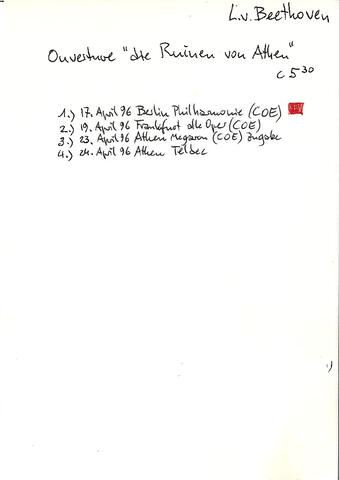 L.v. Beethoven
Ouverture "die Ruinen von Athen"
c 5³⁰
1.) 17. April 96 Berlin Philharmonie (COE)
2.) 19. April 96 Frankfurt alte Oper (COE)
3.) 23. April 96 Athen Megaron (COE) Zugabe
4.) 24. April 96 Athen Teldec